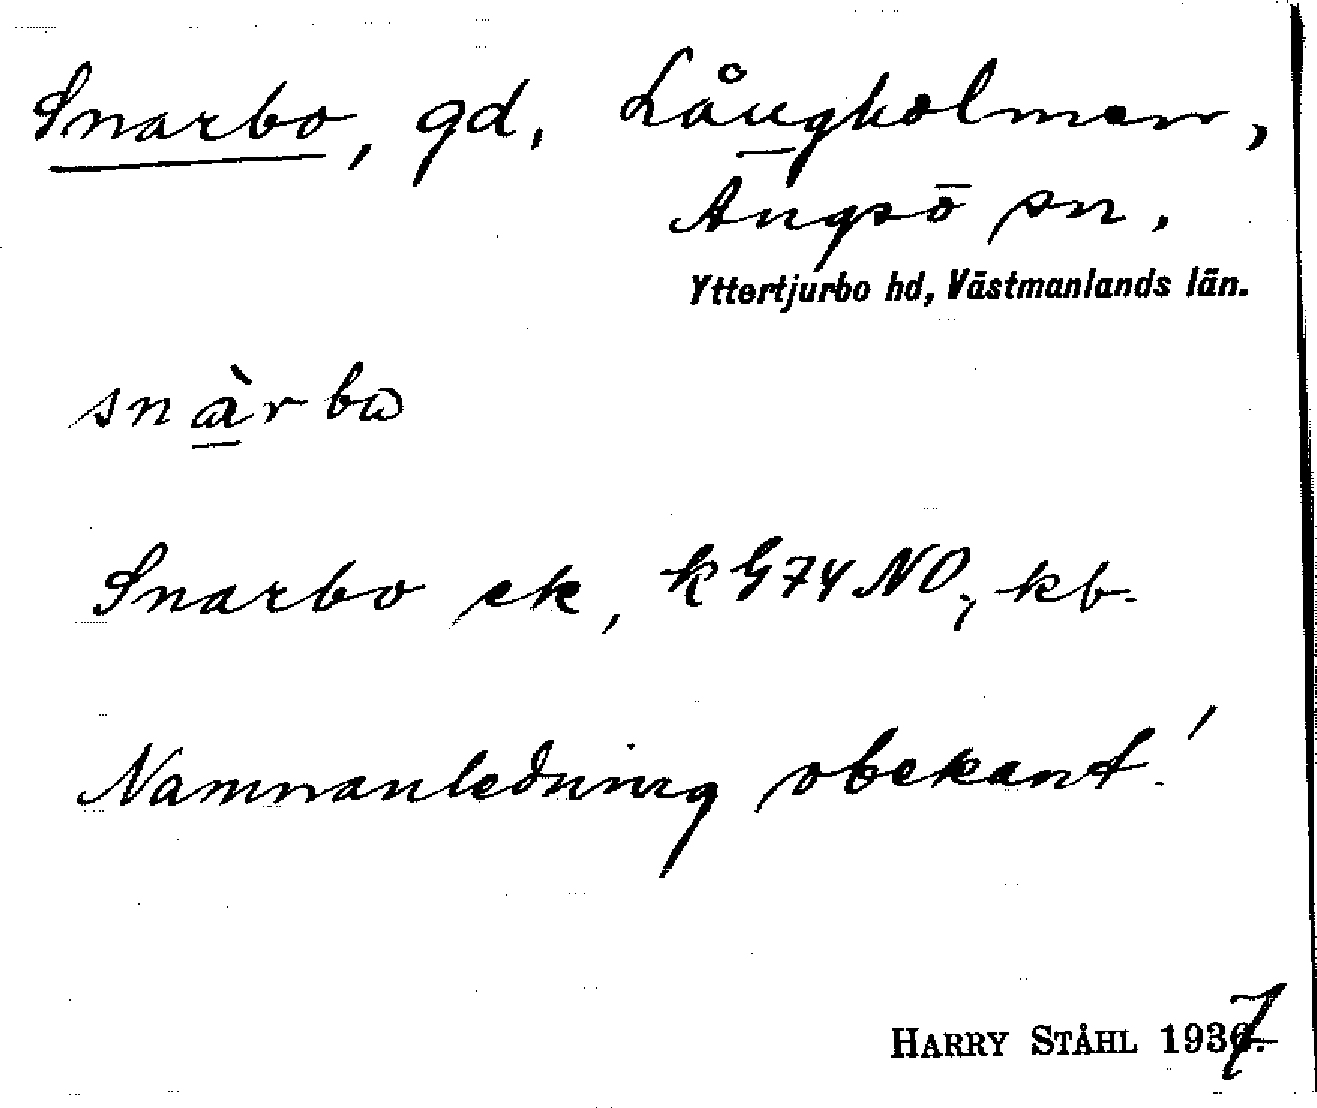 Snarbo, gd, Långholmen,
Ängsö sn.
Yttertjurbo hd, Västmanlands län.
snàrbω
Snarbo ek, k G74 NO, kb.
Namnanledning obekant!
HARRY STÅHL 1937